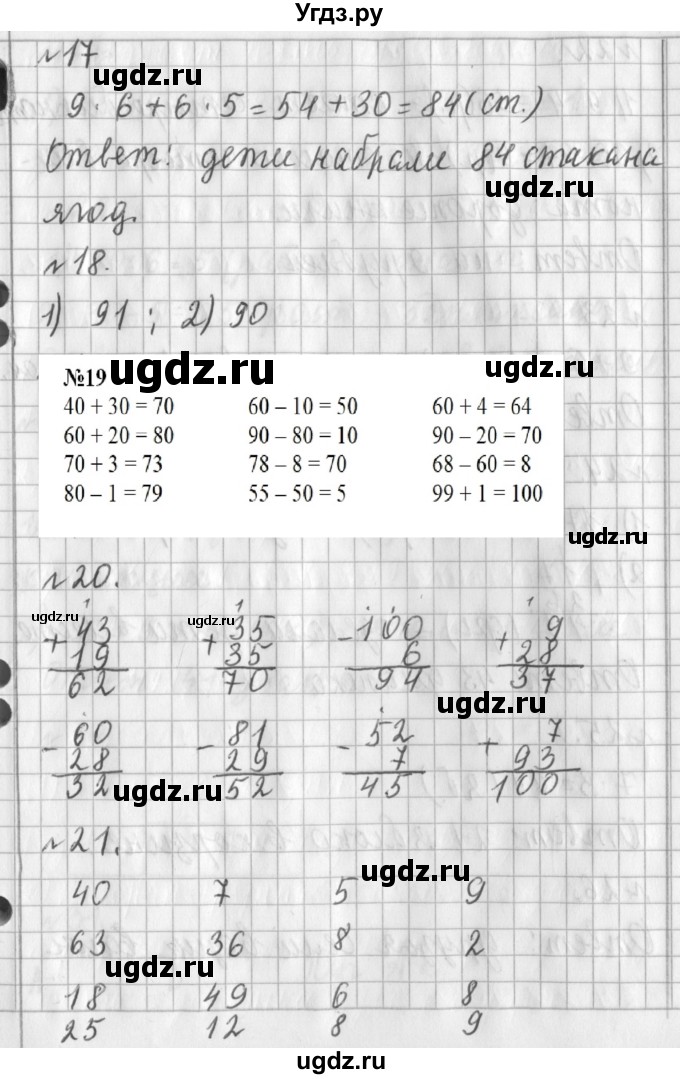 Угдз.ру
№17
ugdz.ru
9 · 6 + 6 · 5 = 54 + 30 = 84 (ст.)
Ответ: дети набрали 84 стакана
ugdz.ru
ягод.
№18.
1) 91 ; 2) 90
№19 ugdz.ru ugdz.ru
40 + 30 = 70 60 – 10 = 50 60 + 4 = 64
60 + 20 = 80 90 – 80 = 10 90 – 20 = 70
70 + 3 = 73 78 – 8 = 70 68 – 60 = 8
80 – 1 = 79 55 – 50 = 5 99 + 1 = 100
ugdz.ru
№20.
1 1 . . 1
ugdz.ru ugdz.ru
+ 43 + 35 - 100 + 9
19 35 6 28
62 70 94 37
ugdz.ru
. . .
- 60 - 81 - 52 + 7
28 29 7 93
32 52 45 100
ugdz.ru ugdz.ru
№21.
ugdz.ru
40 7 5 9
63 36 8 2
ugdz.ru
18 49 6 8
25 12 8 9
ugdz.ru